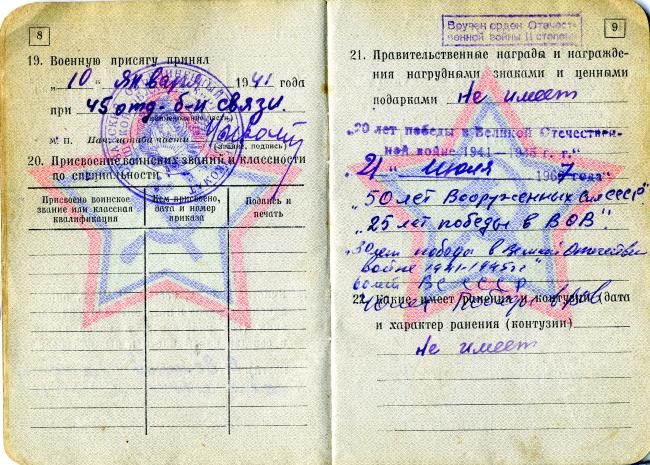 8
19. Военную присягу принял
„ 10 " января 1941 года
при 45 отд. б-н связи.
(наименование части)
М. П. Нач. штаба части
(звание, подпись)
20. Присвоение воинских званий и классности
по специальности
Присвоено воинское
звание или классная
квалификация
Кем присвоено,
дата и номер
приказа
Подпись и
печать
Вручен орден Отечест-
венной войны II степени
9
21. Правительственные награды и награжде-
ния нагрудными знаками и ценными
подарками Не имеет
„20 лет победы в Великой Отечествен-
ной войне 1941—1945 г. г."
„ 21 " июля 1967 года"
"50 лет Вооруженных Сил СССР"
"25 лет победы в ВОВ".
„30 лет победы в Великой Отечествен
войне 1941-1945гг"
60 лет ВС СССР
40 лет Победы в ВОВ
22. Какие имеет ранения и контузии (дата
и характер ранения (контузии)
Не имеет